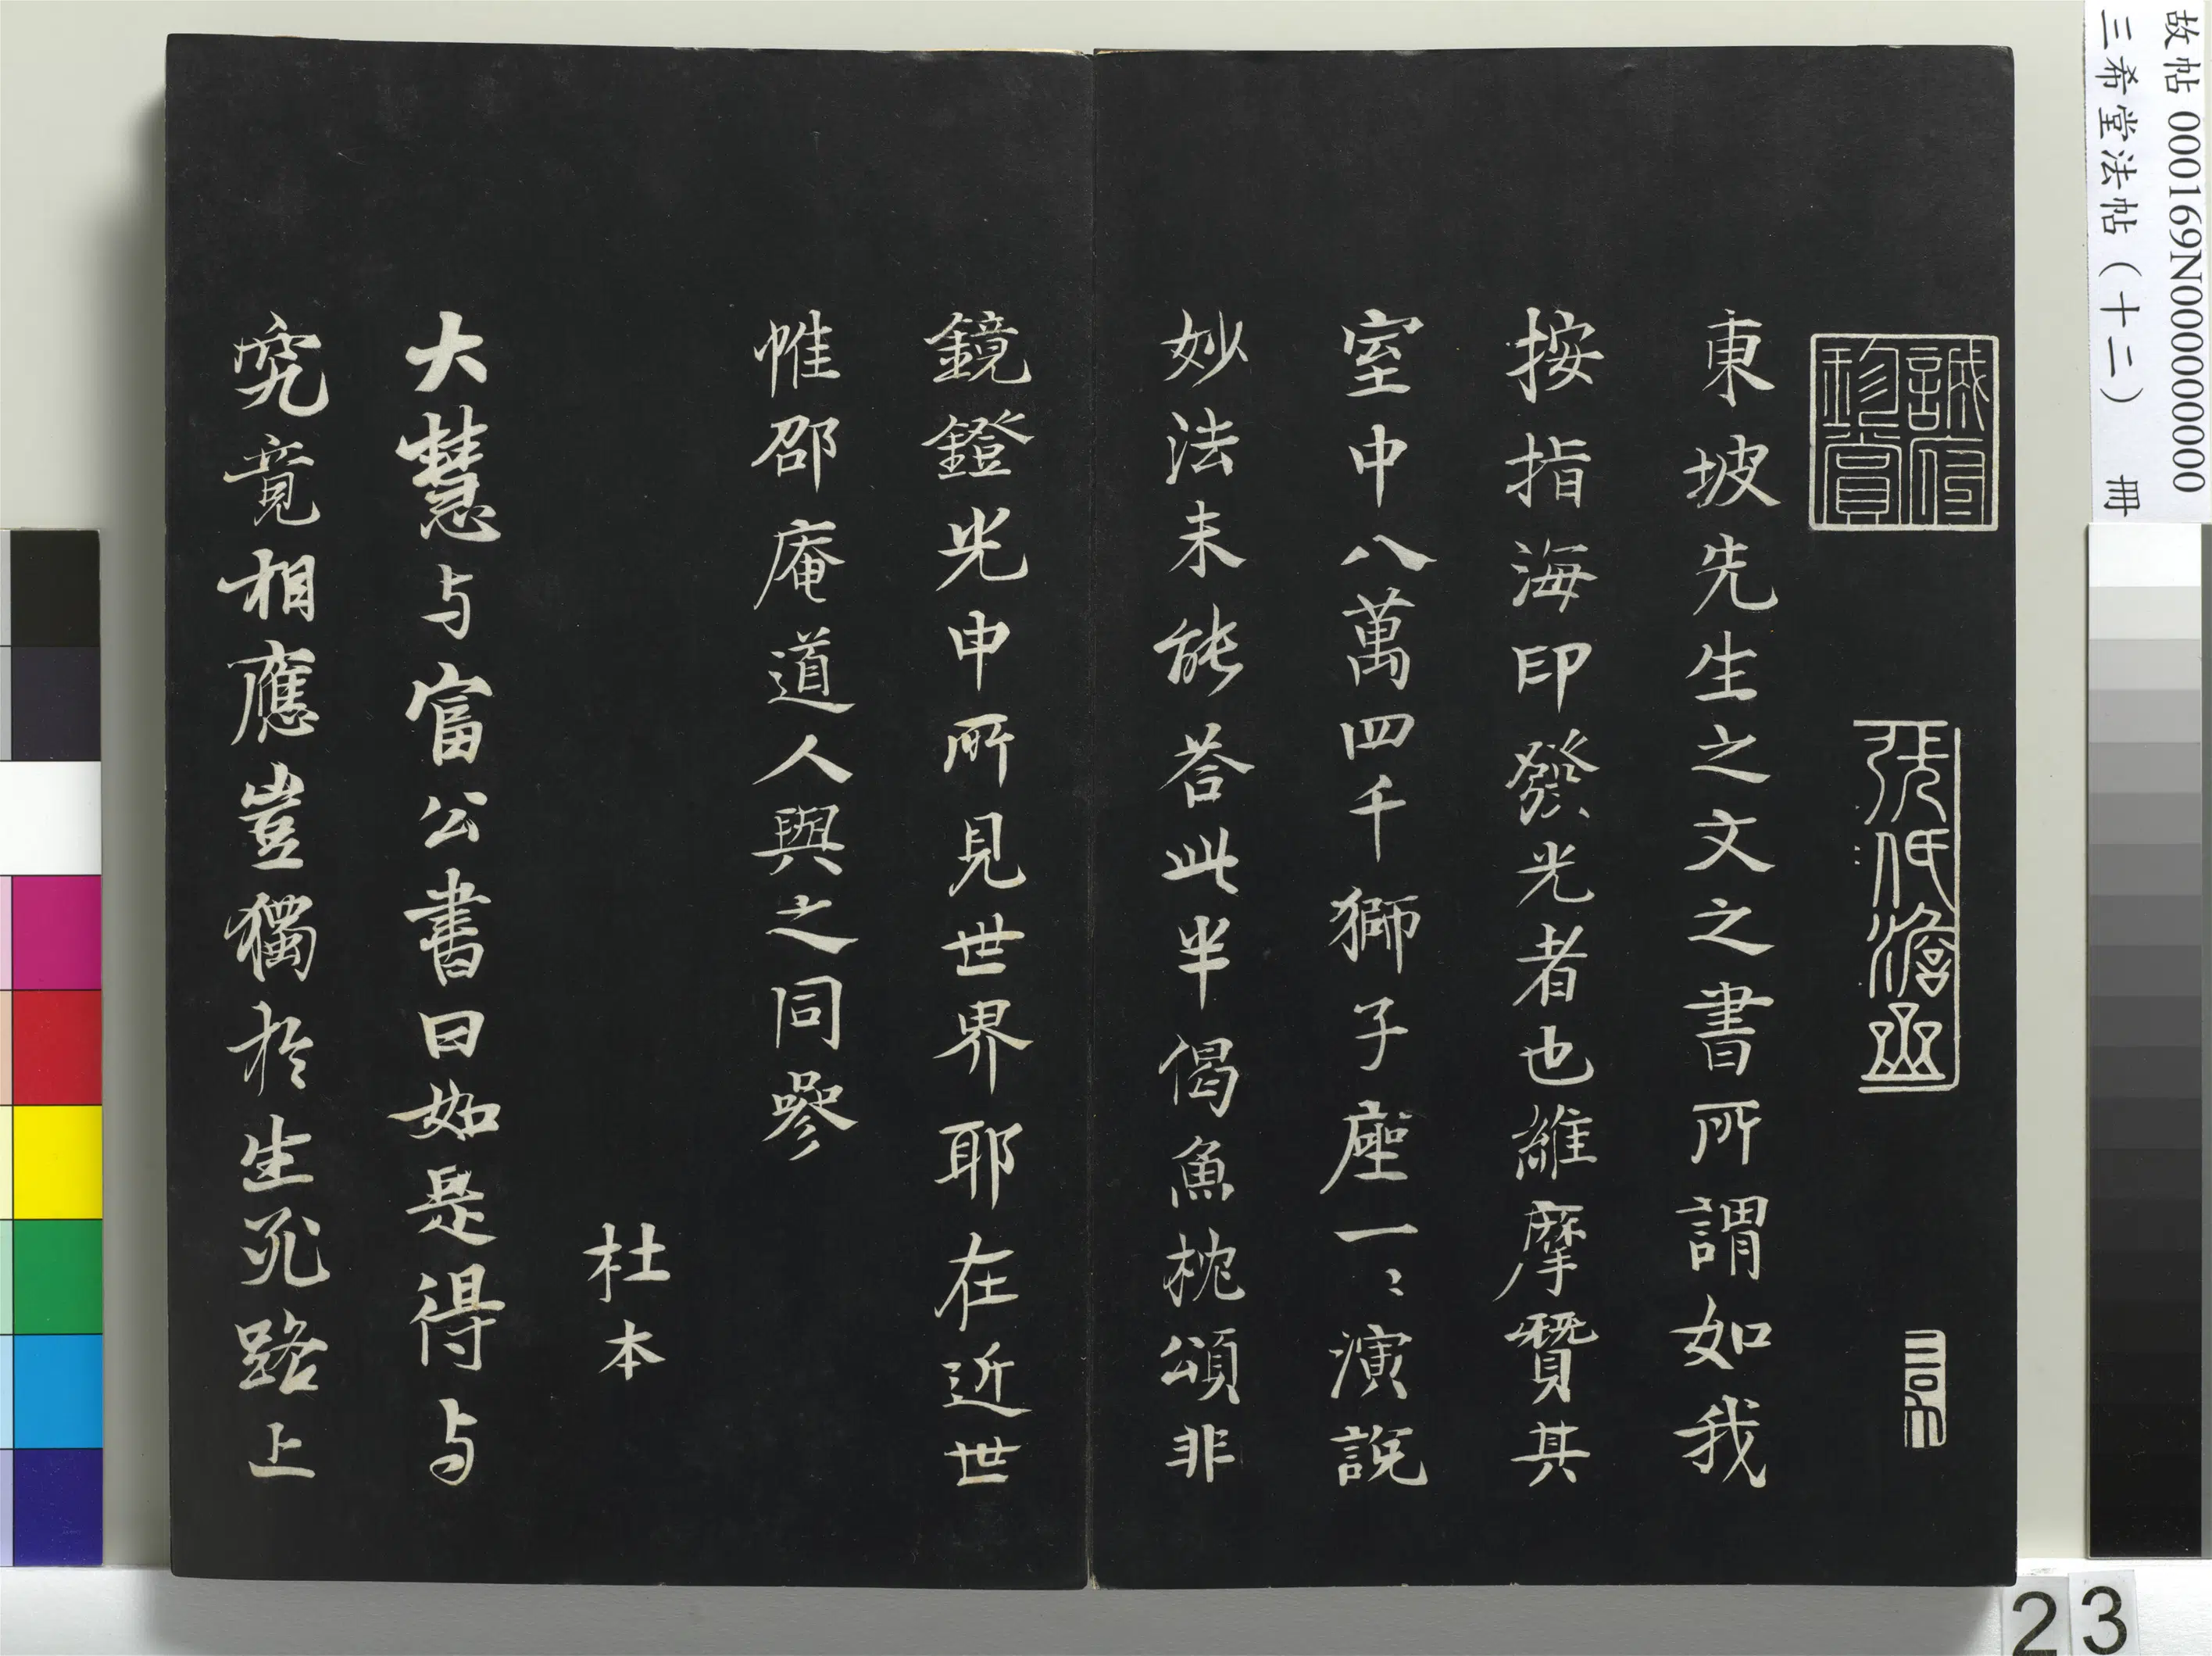 故帖 000169N000000000
三希堂法帖（十二） 冊
誠府
珍賞
東坡先生之文之書所謂如我
按指海印發光者也維摩贊其
室中八萬四千獅子座一〻演說
妙法未能荅此半偈魚枕頌非
鏡鐙光中所見世界耶在近世
惟邵庵道人與之同參
杜本
大慧与富公書曰如是得与
究竟相應豈獨於生死路上
23